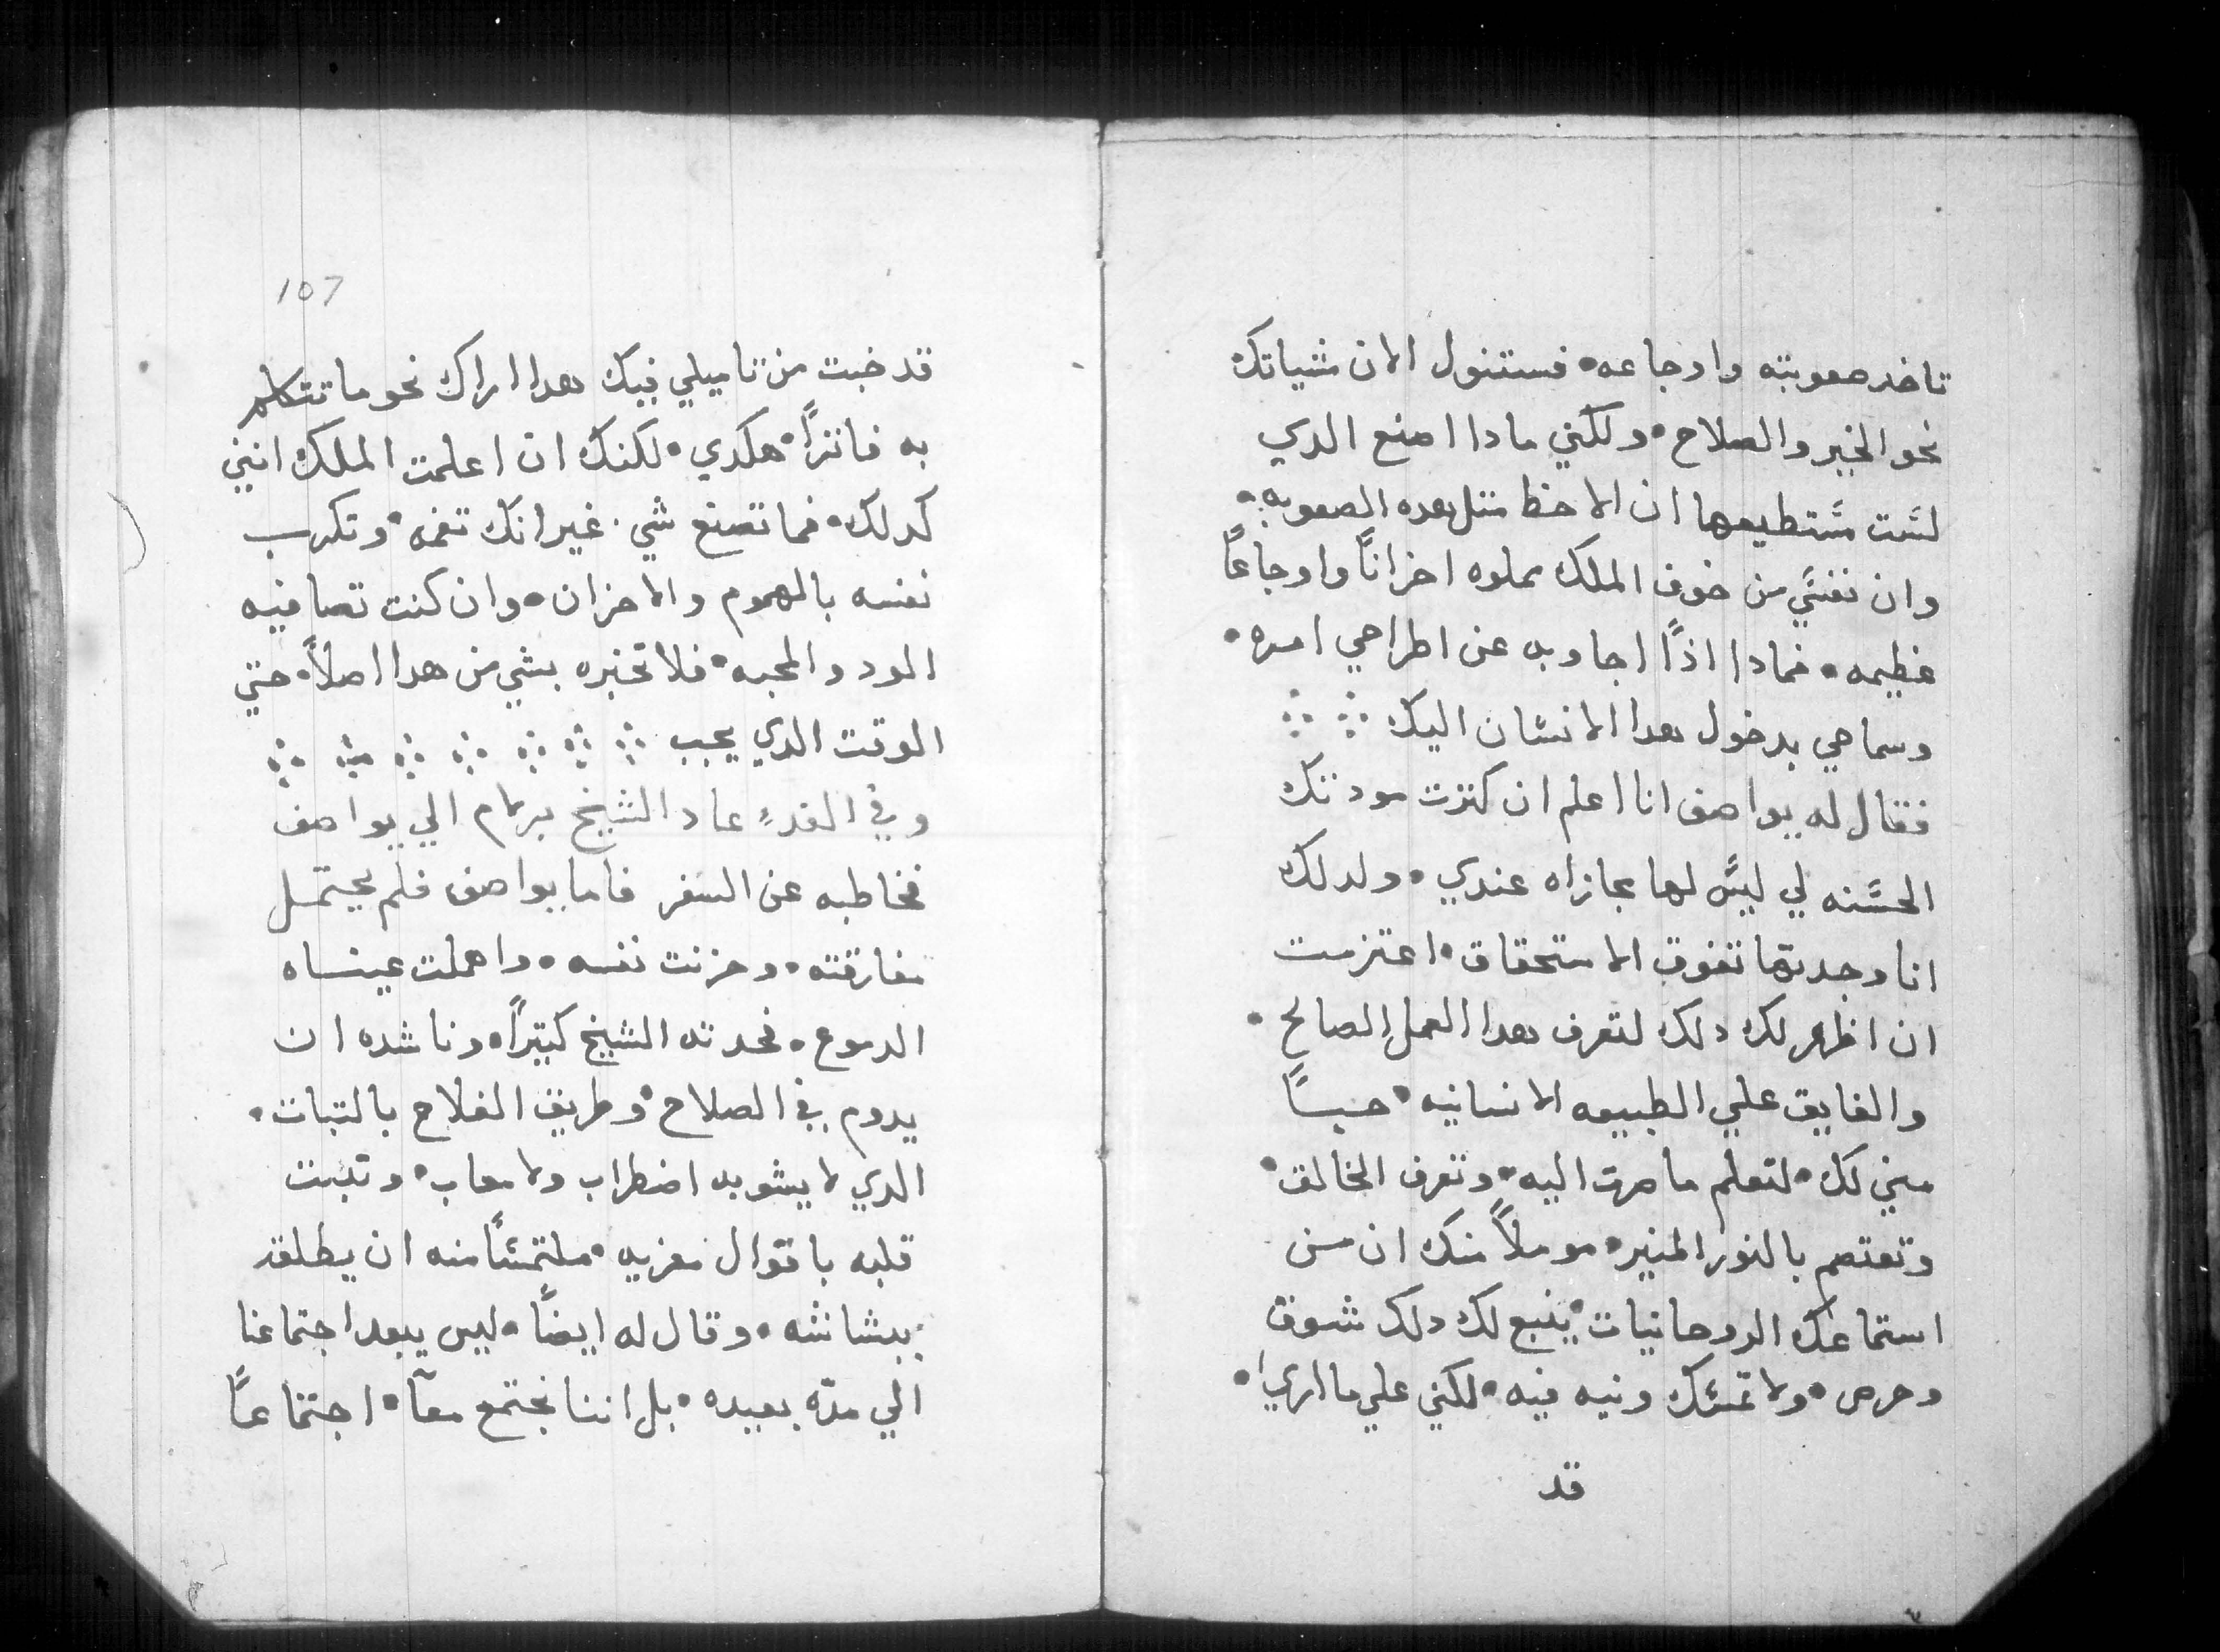 تاخد صعوبته واوجاعه • فستنول الان مثياتك
نحو الخير والصلاح • ولكني مادا اصنع الدي
لست مستطيعها ان الاحظ متل هده الصعوبه •
وان نفسي من خوف الملك مملوه احزاناً واوجاعاً
عظيمه • فمادا اذاً اجاوبه عن اطراحي امره •
وسماحي بدخول هدا الانسان اليك
فقال له يواصف انا اعلم ان كترت مودتك
الحسنه لي ليس لها مجازاه عندي • ولدلك
انا وجدتها تفوق الاستحقاق • اعتزمت
ان اظهر لك دلك لتعرف هدا العمل الصالح •
والفايق علي الطبيعه الانسانيه • حباً
مني لك • لتعلم ما صرت اليه • وتعرف الخالق •
وتعتصم بالنور المنير • موملاً منك ان من
استماعك الروحانيات • ينبع لك دلك شوق
وحرص • ولا تمسك ونيه فيه • لكني علي ما اري •
قد
107
قد خبت من تاميلي فيك هدا اراك نحو ما تتكلم
به فاتراً • هكدي • لكنك ان اعلمت الملك انني
كدلك • فما تصنع شي • غير انك تغمه • وتكرب
نفسه بالهموم والاحزان • وان كنت تصافيه
الود والمحبه • فلا تخبره بشي من هدا اصلاً • حتي
الوقت الدي يجب
وفي الغدٍ عاد الشيخ برلام الي يواصف
فخاطبه عن السفر فاما يواصف فلم يحتمل
مفارقته • وحزنت نفسه • واهملت عيناه
الدموع • فحدته الشيخ كتيراً • وناشده ان
يدوم في الصلاح • وطريق الفلاح بالتبات •
الدي لا يشوبه اضطراب ولا معاب • وتبت
قلبه باقوال معزيه • ملتمساً منه ان يطلقه
ببشاشه • وقال له ايضاً • ليس يبعد اجتماعنا
الي مدّه بعيده • بل اننا نجتمع معاً • اجتماعاً